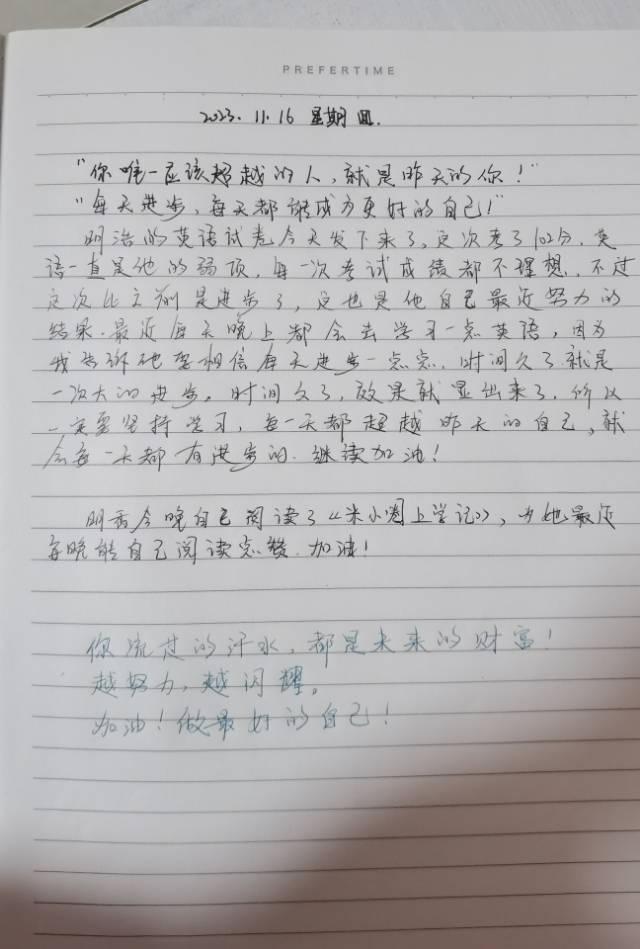 PREFERTIME
2023.11.16 星期四.
"你唯一应该超越的人,就是昨天的你!"
"每天进步,每天都能成为更好的自己!"
明浩的英语试卷今天发下来了,这次考了102分.英
语一直是他的弱项,每一次考试成绩都不理想.不过
这次比之前是进步了,这也是他自己最近努力的
结果.最近每天晚上都会去学习一点英语,因为
我告诉他要相信每天进步一点点.时间久了就是
一次大的进步.时间久了,效果就显出来了,所以
一定要坚持学习,每一天都超越昨天的自己,就
会每一天都有进步的.继续加油!
明香今晚自己阅读了《米小圈上学记》,为她最近
每晚能自己阅读点赞.加油!
你流过的汗水,都是未来的财富!
越努力,越闪耀。
加油!做最好的自己!